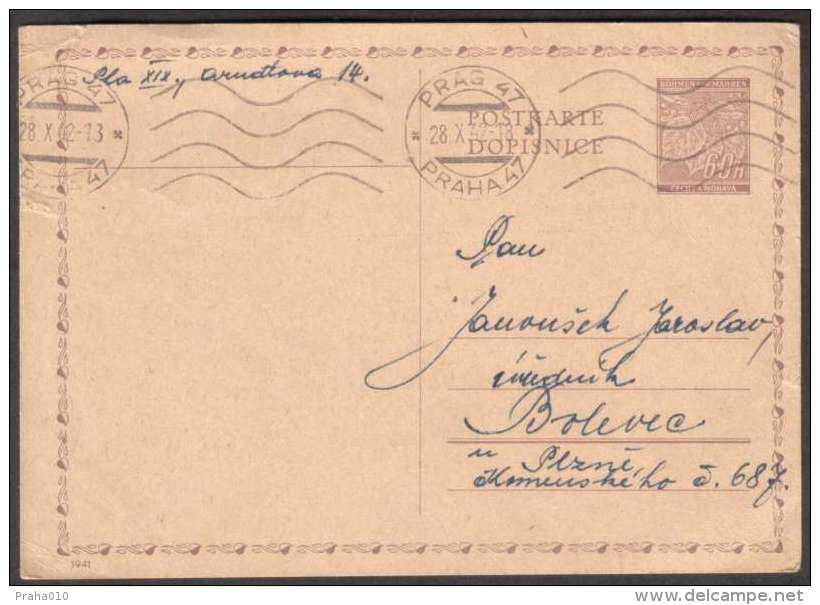 Pha XIX, Arndtova 14.
PRAG 47
28.X.42-18
PRAHA 47
PRAG 47
28.X.42-18
PRAHA 47
BÖHMEN UND MÄHREN
60h
ČECHY A MORAVA
POSTKARTE
DOPISNICE
Pan
Janoušek Jaroslav,
úředník
Bolevec
u Plzně
Komenského č. 687.
1941
Praha010
www.delcampe.net